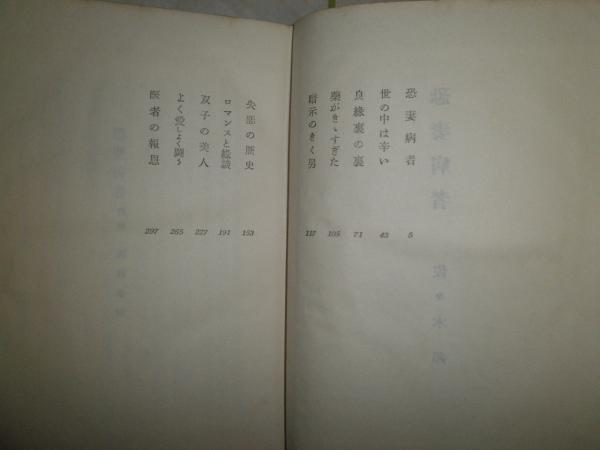 恐妻病者 5
世の中は辛い 43
良縁裏の裏 71
薬がきゝすぎた 105
暗示のきく男 117
失恋の歴史 153
ロマンスと縁談 191
双子の美人 227
よく愛しよく闘う 265
医者の報恩 297
恐妻病者
佐々木邦